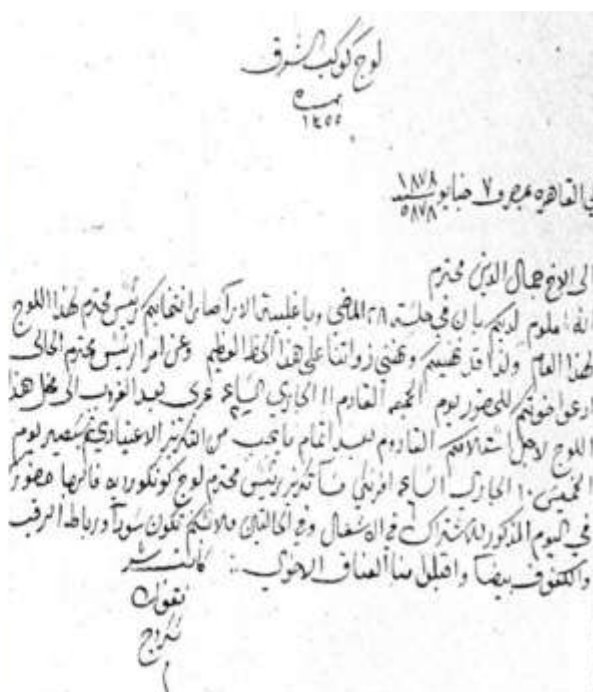 لوج كوكب الشرق
نمرة
١٣٥٥
في القاهره بمصر في ٧ جنايو سنة ١٨٧٨
٥٨٧٨
الى الاخ جمال الدين محترم
انه معلوم لديكم بان في جلسة ٢٨ الماضي وباغلبية الاراء صار انتخابكم رئيس محترم لهذا اللوج
لهذا العام ولذا قد نهنيكم ونهني ذواتنا على هذا الحظ العظيم وعن امر الرئيس محترم الحالي
ادعو اخوتكم للحضور يوم الجمعه القادم ١١ الجاري الساعه ٢ عربي بعد الغروب الى محل هذا
اللوج لاجل استلامكم القادوم بعد اتمام ما يجب من التكريز الاعتيادي ثم سيصير يوم
الخميس ١٠ الجاري الساعه ٦ افرنكي مساء تكريز رئيس محترم لوج كونكورديه فالرجا حضوركم
في اليوم المذكور للاشتراك في الاشغال وفي الحالتين ملابسكم تكون سوداء ورباط الرقبه
والكفوف بيضاء واقبلوا منا العناق الاخوي
كاتب سر
نقولا
سكروج